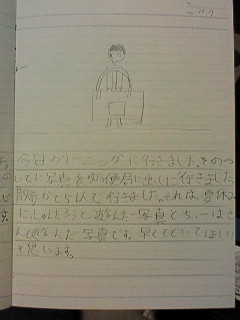 今日クリーニングに行きました。そのつ
いでに写真をゆう便局に出しに行きました
行きました。それは、夏休み
に、しゅんたろうと遊んだ写真と
遊んだ写真です。早くとどいてほしい
と思います。